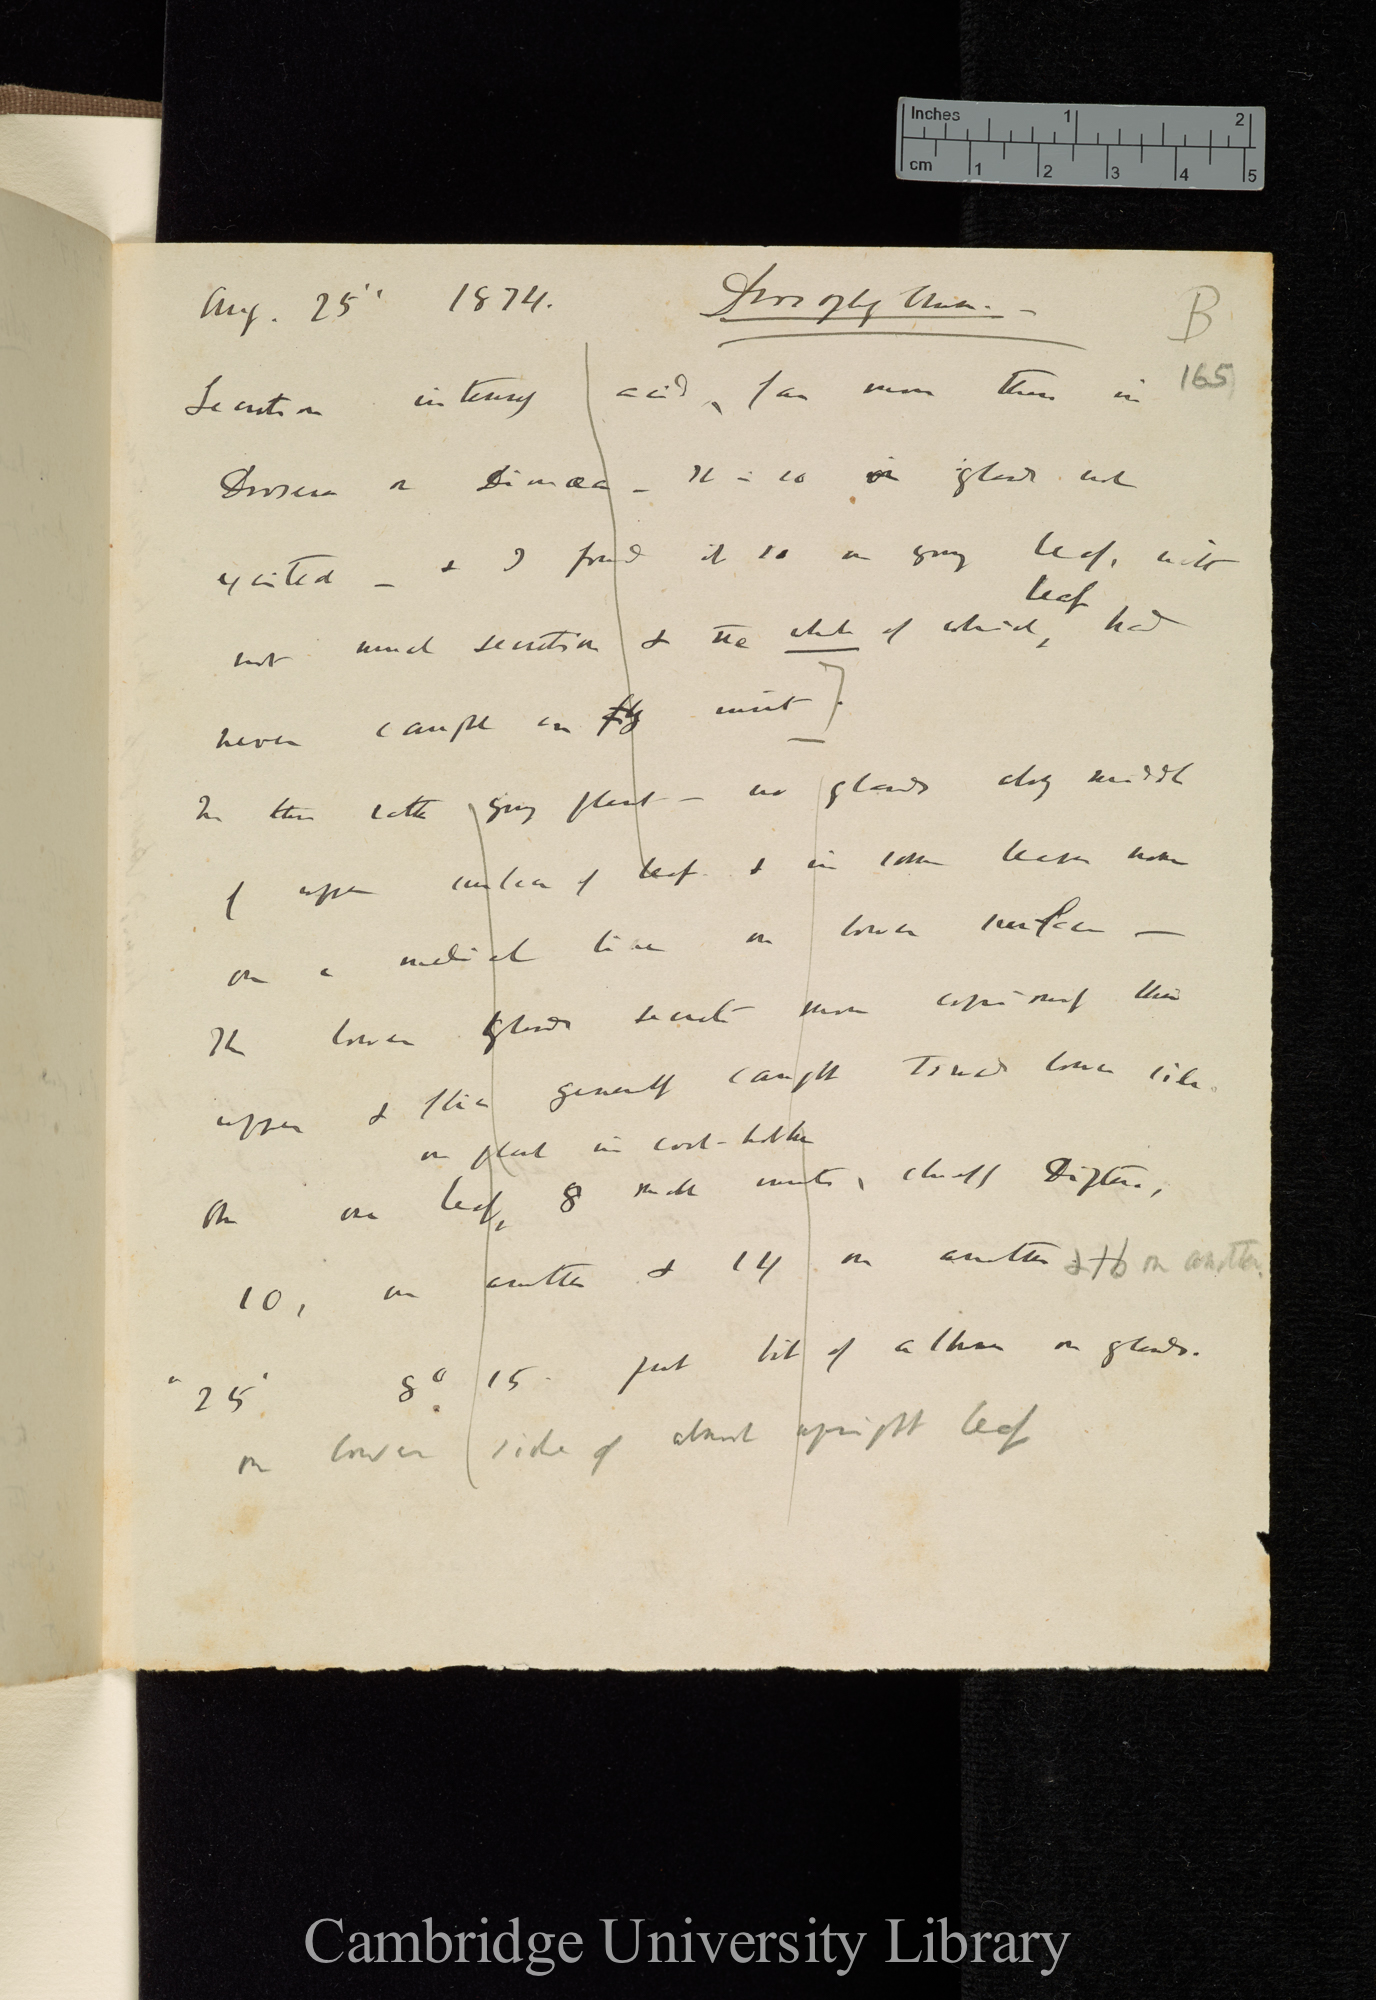 Inches 1 2
cm 1 2 3 4 5
Aug. 25'' 1874. Drosophyllum. —
B
165
Secretion intensely acid, far more than in
Drosera or Dionæa — It is so in glands not
excited — & I found it so on young leaf, with
leaf
not much secretion & the whole of which, had
never caught an fly insect].
In this rather young plant — no glands along middle
of upper surface of leaf & in some leaves none
on a medial line on lower surface —
The lower glands secrete more copiously than
upper & flies generally caught towards lower side.
on plant in cool-hothouse
On one leaf, 8 small insects, chiefly Diptera,
10, on another & 14 on another & 16 on another.
" 25' 8° 15 put bit of albumen on glands.
on lower side of almost upright leaf
Cambridge University Library